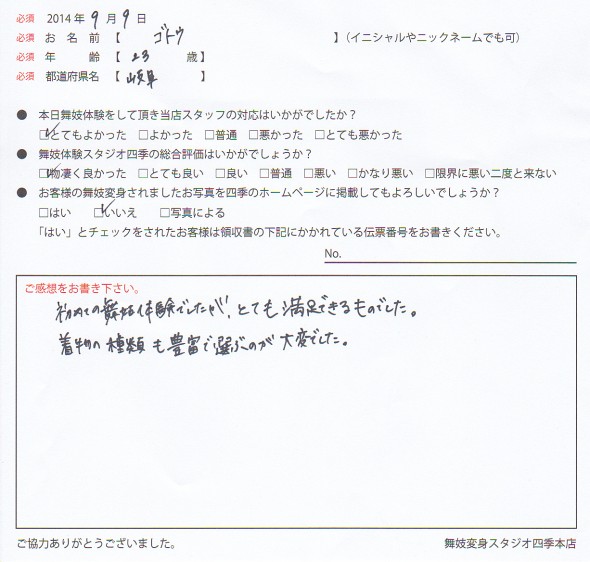 必須 2014年 9月 9日
必須 お名前【 ゴトウ 】（イニシャルやニックネームでも可）
必須 年齢【 23 歳】
必須 都道府県名【 岐阜 】
● 本日舞妓体験をして頂き当店スタッフの対応はいかがでしたか？
☑とてもよかった □よかった □普通 □悪かった □とても悪かった
● 舞妓体験スタジオ四季の総合評価はいかがでしょうか？
☑物凄く良かった □とても良い □良い □普通 □悪い □かなり悪い □限界に悪い二度と来ない
● お客様の舞妓変身されましたお写真を四季のホームページに掲載してもよろしいでしょうか？
□はい ☑いいえ □写真による
「はい」とチェックをされたお客様は領収書の下記にかかれている伝票番号をお書きください。
No.
ご感想をお書き下さい。
初めての舞妓体験でしたが、とても満足できるものでした。
着物の種類も豊富で選ぶのが大変でした。
ご協力ありがとうございました。 舞妓変身スタジオ四季本店